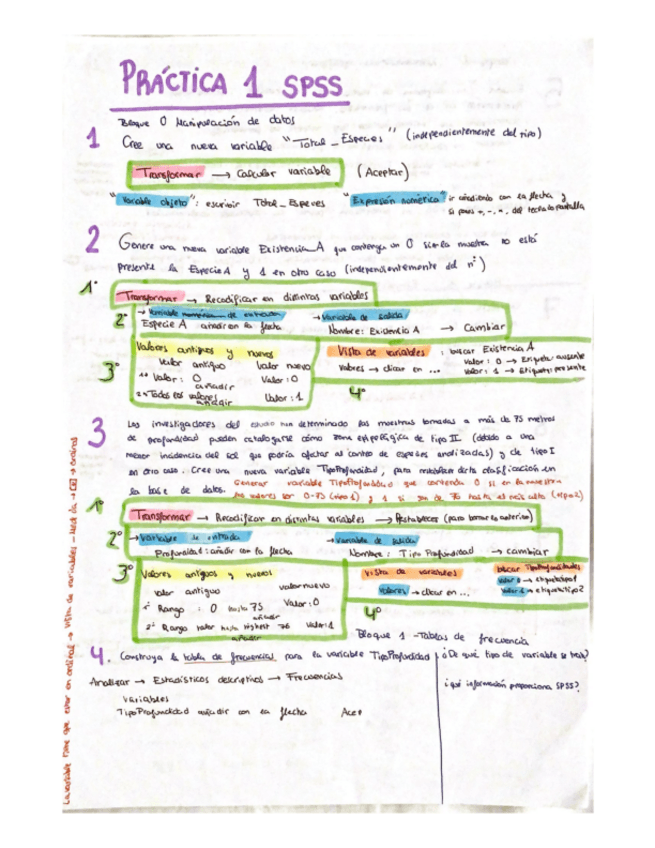 PRÁCTICA 1 SPSS
Bloque 0 Manipulación de datos
1 Cree una nueva variable "Total_Especies" (independientemente del tipo)
Transformar → Calcular variable (Aceptar)
"Variable objeto": escribir Total_Especies "Expresión numérica" ir añadiendo con la flecha y
si pones +, -, *, del teclado pantalla
2 Genere una nueva variable Existencia_A que contenga un 0 si en la muestra no está
presente la Especie A y 1 en otro caso (independientemente del nº)
1º Transformar → Recodificar en distintas variables
2º → Variable numérica de entrada → Variable de salida
Especie A añadir con la flecha Nombre: Existencia A → Cambiar
3º Valores antiguos y nuevos
Valor antiguo Valor nuevo
1º Valor: 0 Valor: 0
añadir
2º Todos los valores Valor: 1
añadir
Vista de variables: buscar Existencia A
Valores → clicar en ... Valor: 0 → Etiqueta: ausente
Valor: 1 → Etiqueta: presente
4º
3 Los investigadores del estudio han determinado las muestras tomadas a más de 75 metros
de profundidad pueden catalogarse cómo zona epipelágica de tipo II (debido a una
menor incidencia del sol que podría afectar al conteo de especies analizadas) y de tipo I
en otro caso. Cree una nueva variable TipoProfundidad, para establecer dicha clasificación en
la base de datos. Generar variable TipoProfundidad que contenga 0 si en la muestra
los valores son 0-75 (tipo 1) y 1 si son de 76 hasta el más alto (tipo 2)
1º Transformar → Recodificar en distintas variables → Restablecer (para borrar lo anterior)
2º → Variable de entrada → Variable de salida
Profundidad: añadir con la flecha Nombre: Tipo Profundidad → cambiar
3º Valores antiguos y nuevos
valor antiguo valor nuevo
1º Rango: 0 hasta 75 Valor: 0
añadir
2º Rango valor hasta Highest 76 Valor: 1
añadir
Vista de variables buscar TipoProfundidades
Valores → clicar en ... Valor 0 → etiqueta tipo 1
Valor 1 → etiqueta tipo 2
4º
Bloque 1 - Tablas de frecuencia
4. Construya la tabla de frecuencias para la variable TipoProfundidad ¿De qué tipo de variable se trata?
Analizar → Estadísticos descriptivos → Frecuencias
¿qué información proporciona SPSS?
Variables
TipoProfundidad añadir con la flecha
La variable tiene que estar en ordinal → Vista de variables